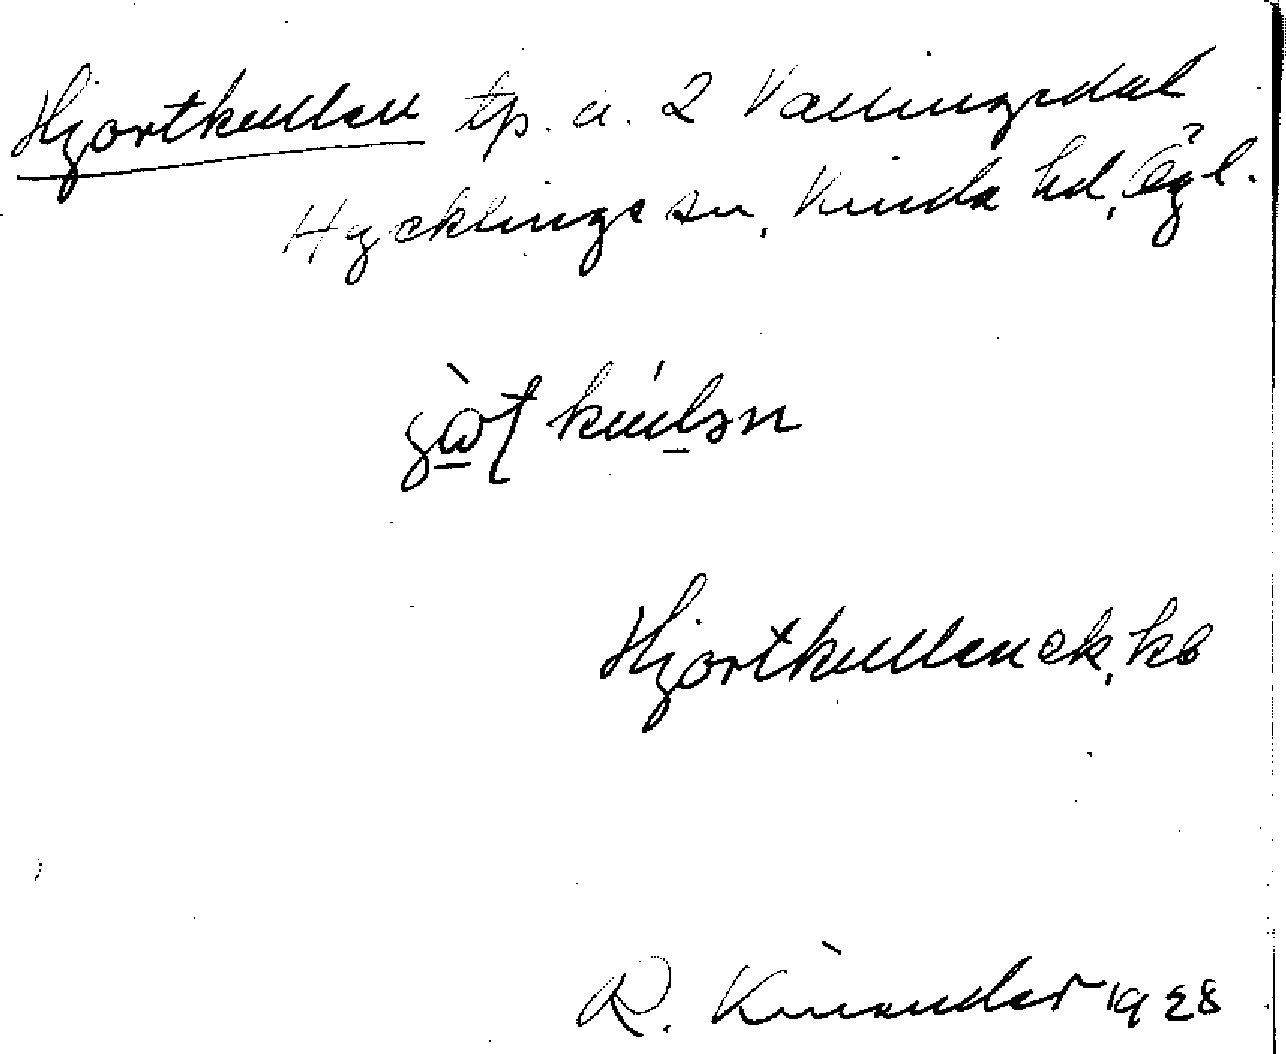 Hjortkullen tp. å. 2 Vällingsdal
Hycklinge sn, Kinda hd, Ögl.
Hjortkullen ek, kb
R. Kinander 1928